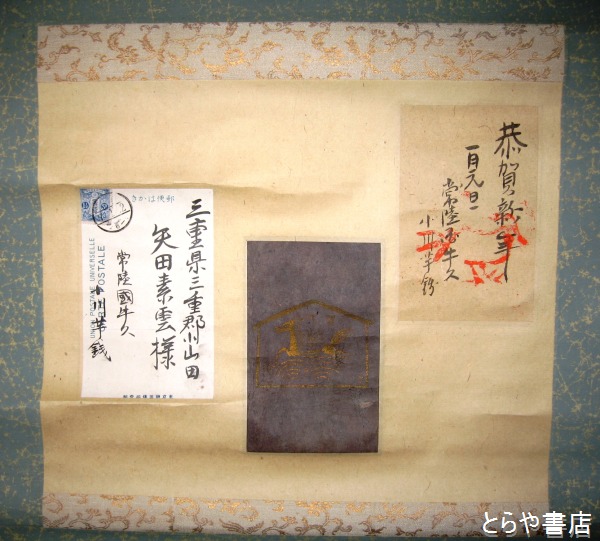 恭賀新年
一月元旦
常陸國牛久
小川芋銭
郵便はがき
三重県三重郡川山田
矢田素雲様
常陸國牛久
小川芋銭
UNION POSTALE UNIVERSELLE
CARTE POSTALE
とらや書店